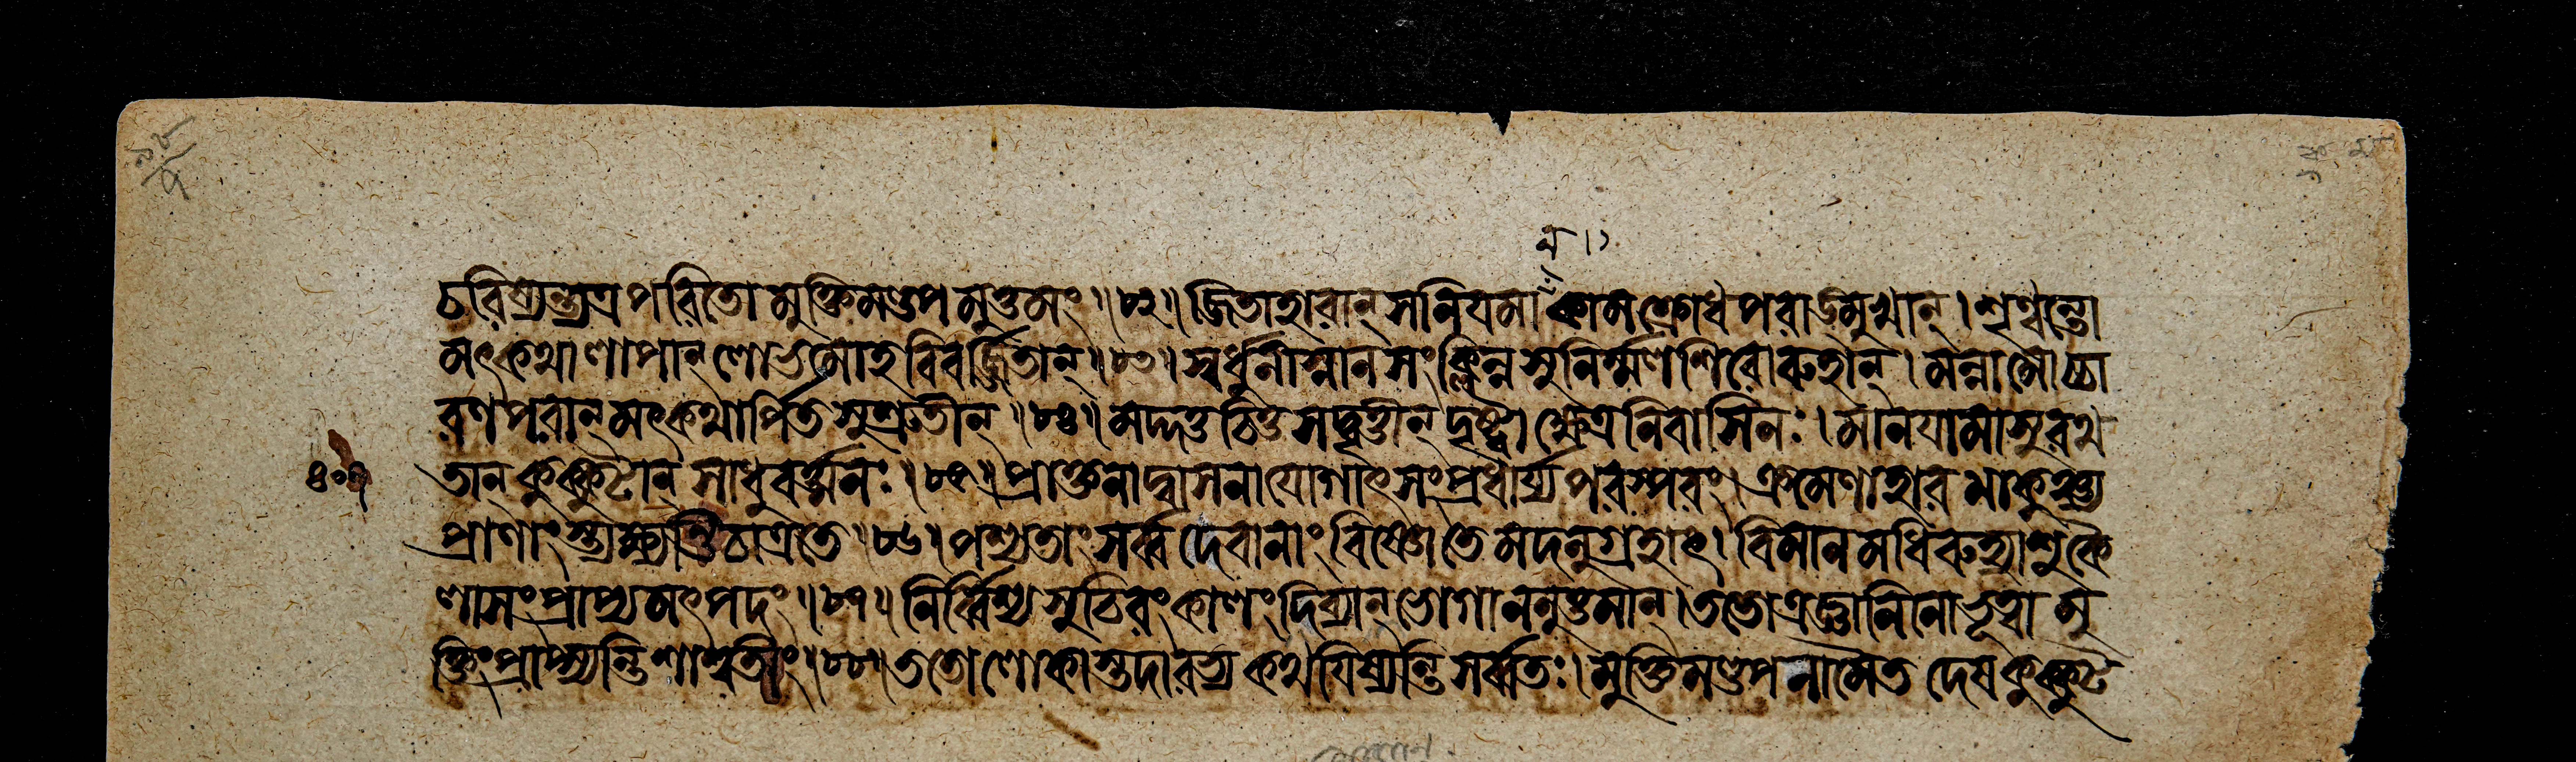 চরিষ্যন্ত্যত্র পরিতো মুক্তিমণ্ডপমুত্তমং ॥ ৮২ ॥ জিতাহারান্ সনিযমা কামক্রোধপরাঙ্মুখান্ । শৃণ্বন্তো
মৎকথালাপান্ লোভমোহবিবর্জ্জিতান্ ॥ ৮৩ ॥ স্বর্ধুনীস্নানসংক্লিন্নসুনির্ম্মলশিরোরুহান্ । মন্নামোচ্চা
রণপরান্ মৎকথার্পিতসুশ্রুতীন্ ॥ ৮৪ ॥ মদ্দত্তচিত্তসদ্বৃত্তীন্ দৃষ্ট্বা ক্ষেত্রনিবাসিনঃ । মানযামাসুরথ
তান্ কুক্কুটান্ সাধুবর্ত্মনঃ ॥ ৮৫ ॥ প্রাক্তনাদ্বাসনাযোগাৎ সংপ্রধার্য্য পরস্পরং । ক্রমেণাহারমাকুঞ্চ্য
প্রাণাংস্ত্যক্ষ্যন্তি চাত্র তে ॥ ৮৬ ॥ পশ্যতাং সর্ব্বদেবানাং বিষ্ণো তে মদনুগ্রহাৎ । বিমানমধিরুহ্যাশু কৈ
লাসং প্রাপ্য মৎপদং ॥ ৮৭ ॥ নির্ব্বিশ্য সুচিরং কালং দিব্যান্ ভোগাননুত্তমান্ । ততোত্র জ্ঞানিনো ভূত্বা মু
ক্তিং প্রাপ্স্যন্তি শাশ্বতীং ॥ ৮৮ ॥ ততো লোকাস্তদারভ্য কথযিষ্যন্তি সর্ব্বতঃ । মুক্তিমণ্ডপনামৈতদেষ কুক্কুট